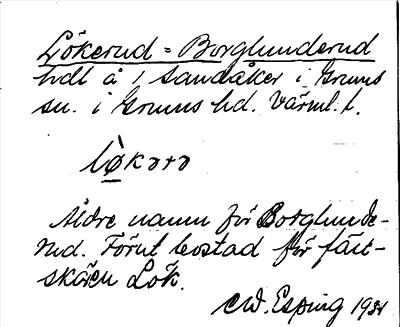 Lökerud = Borglunderud
hdl å 1 Sandåker i Grums
sn. i Grums hd. Värml. l.
lø̀kərə
Äldre namn för Borglunde-
rud. Förut bostad för fält-
skären Lök.
E.W. Esping 1931